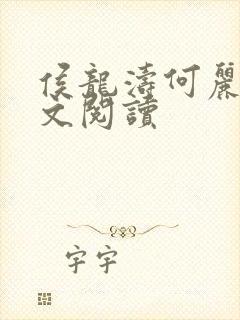 侯龍濤何麗
文閱讀
字字